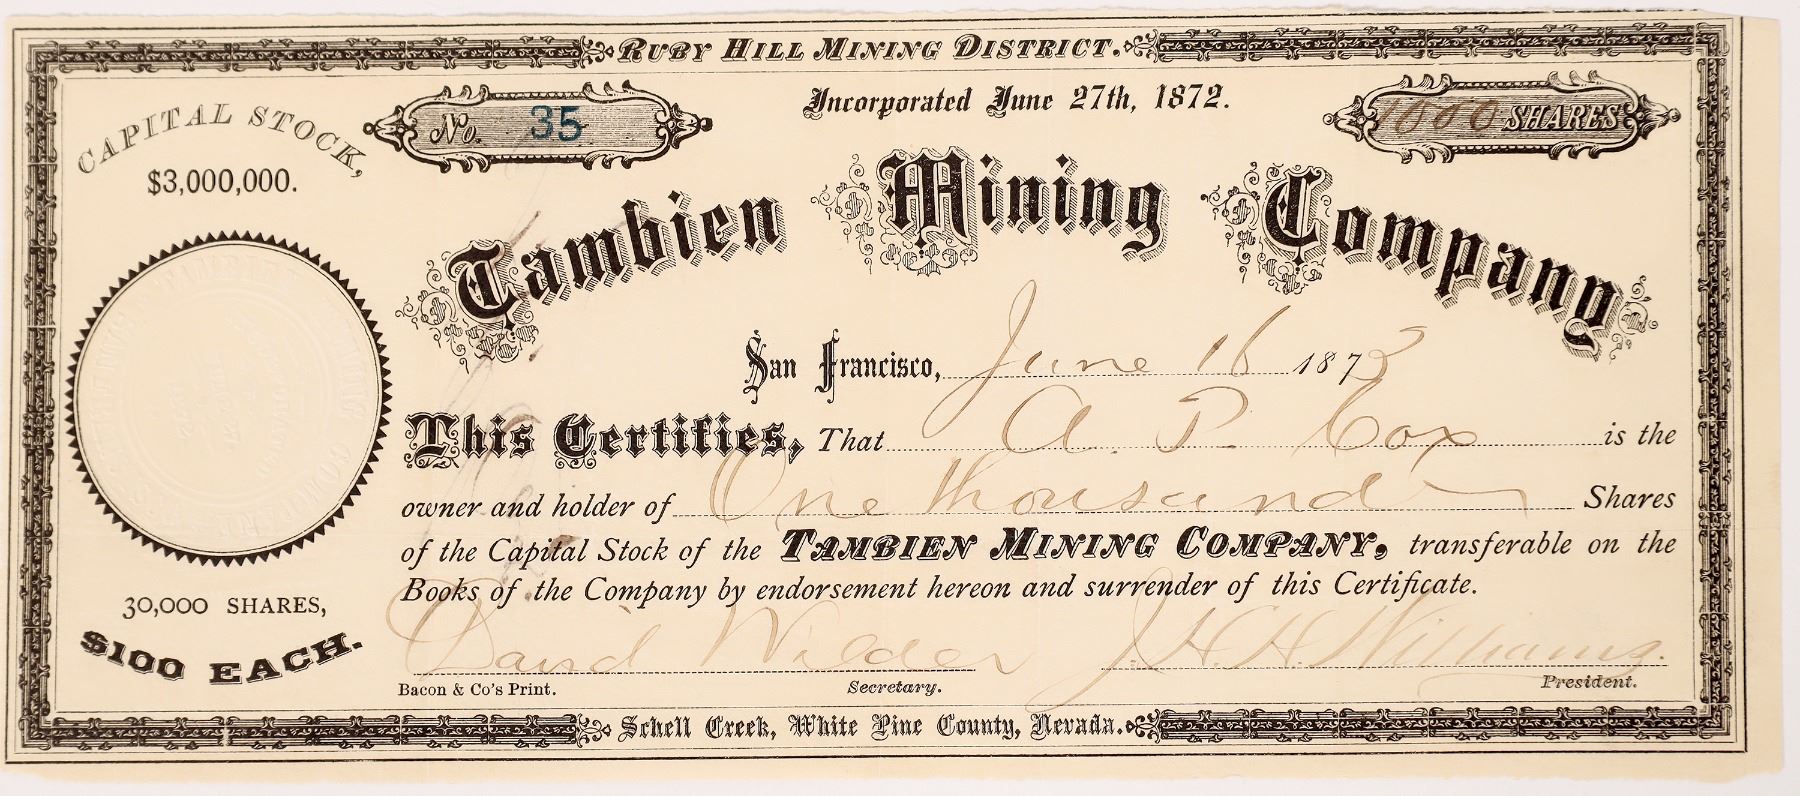 RUBY HILL MINING DISTRICT.
CAPITAL STOCK,
$3,000,000.
No. 35
Incorporated June 27th, 1872.
1000 SHARES
Tambien Mining Company
San Francisco, June 16 1873
This Certifies, That A. P. Cox is the
owner and holder of One thousand Shares
of the Capital Stock of the TAMBIEN MINING COMPANY, transferable on the
Books of the Company by endorsement hereon and surrender of this Certificate.
30,000 SHARES,
$100 EACH.
David Wilder J. H. H. Williams.
Bacon & Co's Print. Secretary. President.
Schell Creek, White Pine County, Nevada.